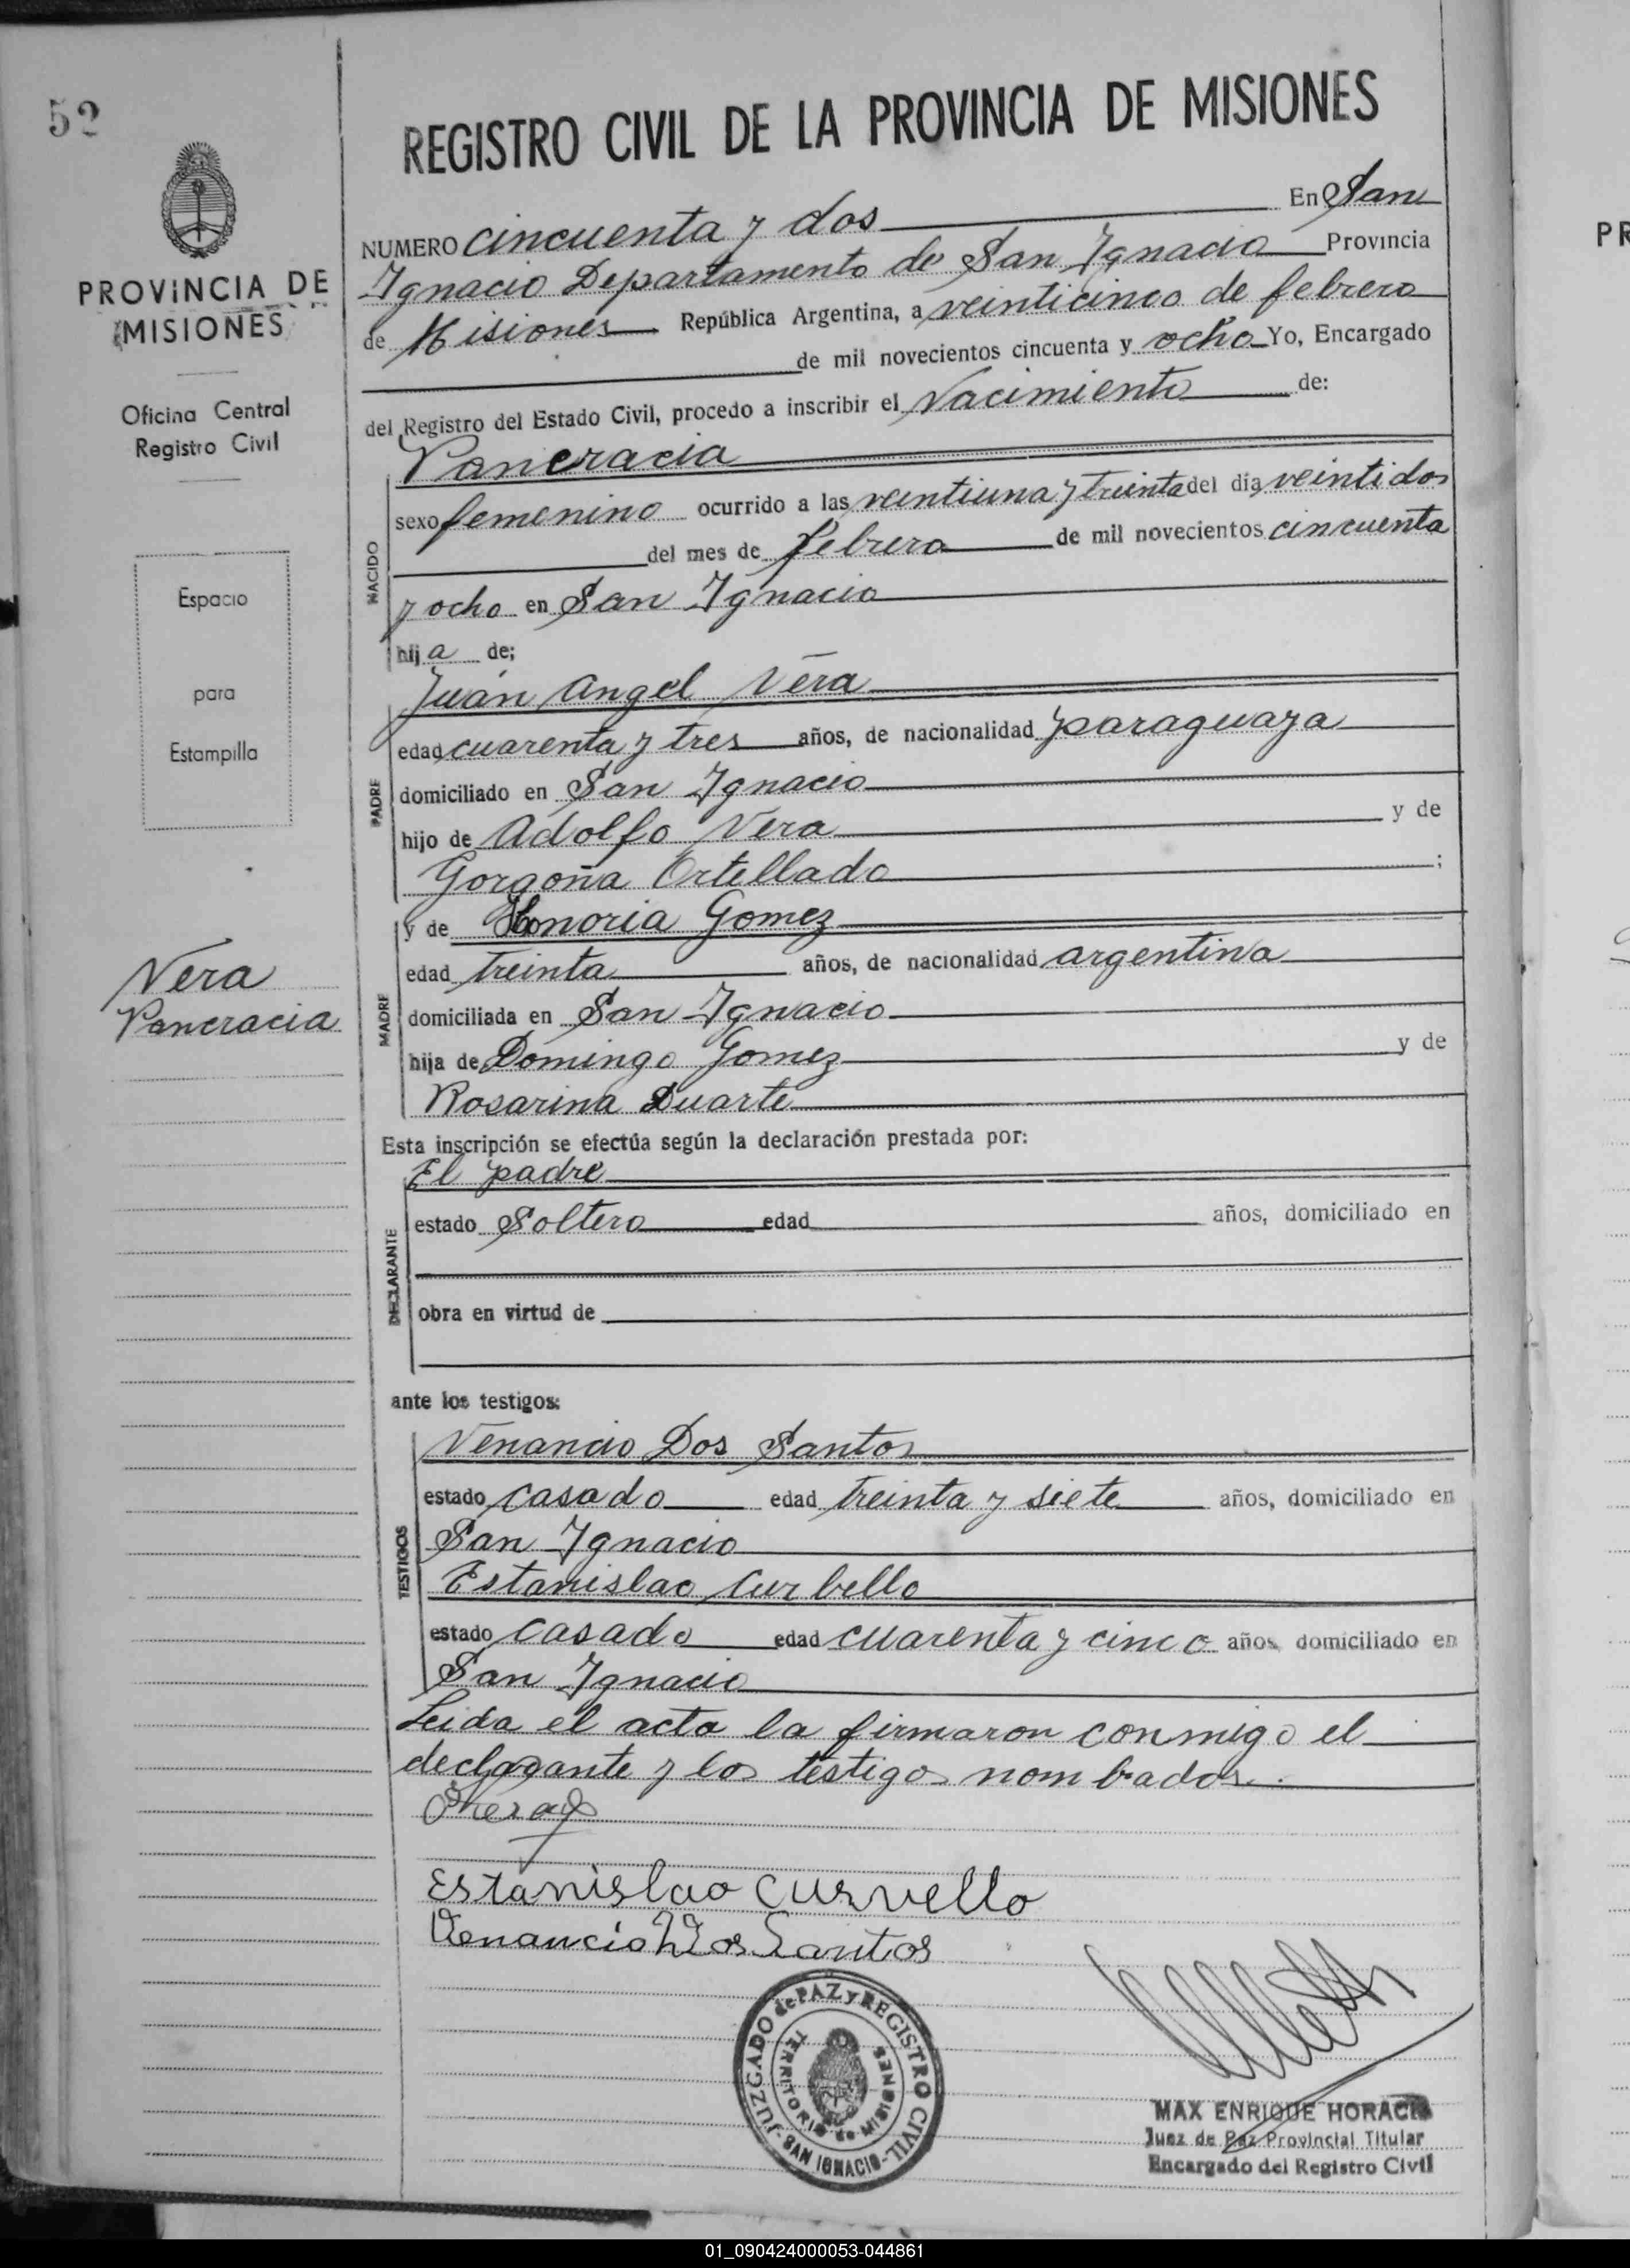 52
REGISTRO CIVIL DE LA PROVINCIA DE MISIONES
PROVINCIA DE
MISIONES
Oficina Central
Registro Civil
Espacio
para
Estampilla
Vera
Pancracia
NUMERO cincuenta y dos En San
Ignacio Departamento de San Ignacio Provincia
de Misiones República Argentina, a veinticinco de febrero
de mil novecientos cincuenta y ocho Yo, Encargado
del Registro del Estado Civil, procedo a inscribir el Nacimiento de:
NACIDO
Pancracia
sexo femenino ocurrido a las veintiuna y treinta del dia veintidos
del mes de febrero de mil novecientos cincuenta
y ocho en San Ignacio
hij a de;
PADRE
Juan Angel Vera
edad cuarenta y tres años, de nacionalidad paraguaya
domiciliado en San Ignacio
hijo de Adolfo Vera y de
Gorgoña Ortellado ;
MADRE
y de Honoria Gomez
edad treinta años, de nacionalidad argentina
domiciliada en San Ignacio
hija de Domingo Gomez y de
Rosarina Duarte
Esta inscripción se efectúa según la declaración prestada por:
DECLARANTE
El padre
estado Soltero edad años, domiciliado en
obra en virtud de
ante los testigos:
TESTIGOS
Venancio Dos Santos
estado casado edad treinta y siete años, domiciliado en
San Ignacio
Estanislao Curbello
estado casado edad cuarenta y cinco años domiciliado en
San Ignacio
Leida el acta la firmaron conmigo el
declarante y los testigos nombados.
Estanislao Curvello
Venancio Dos Santos
JUZGADO de PAZ y REGISTRO CIVIL
TERRITORIO de MISIONES
- SAN IGNACIO -
MAX ENRIQUE HORACIO
Juez de Paz Provincial Titular
Encargado del Registro Civil
PR
01_090424000053-044861